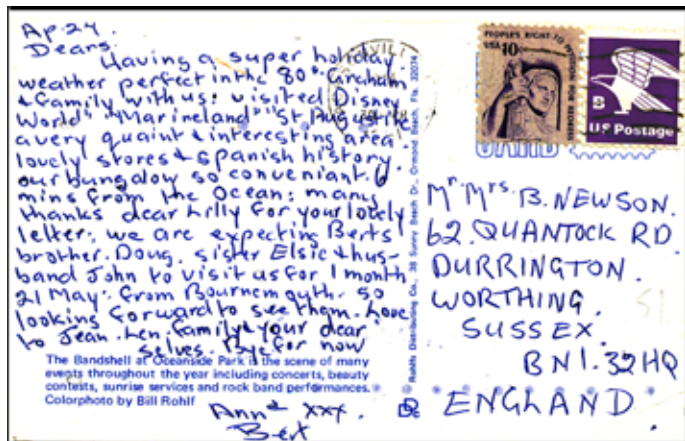 Ap. 24.
Dears.
Having a super holiday
weather perfect in the 80° Graham
& family with us: visited Disney
World" "Marineland" "St Augustine
a very quaint & interesting area
lovely stores & spanish history.
our bungalow so conveniant. 6
mins from the Ocean: many
thanks dear Lilly for your lovely
letter: we are expecting Berts
brother. Doug. sister Elsie & hus-
band John to visit us for 1 month
21 May. from Bournemouth. so
looking forward to see them. Love
to Jean. Len. family & your dear
selves. Bye for now
The Bandshell at Oceanside Park is the scene of many
events throughout the year including concerts, beauty
contests, sunrise services and rock band performances.
Colorphoto by Bill Rohlf
Ann & xxx.
Bert
Rohlfs Distributing Co., 38 Sunny Beach Dr., Ormond Beach, Fla. 32074
PEOPLE'S RIGHT TO PETITION FOR REDRESS
USA 10c
B
US Postage
Mr. Mrs. B. NEWSON.
62. QUANTOCK RD.
DURRINGTON.
WORTHING.
SUSSEX.
BN1. 32HQ
ENGLAND.